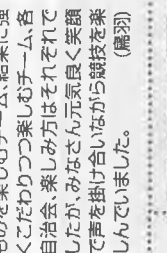 ものを楽しむチーム、結果に強
くこだわりつつ楽しむチーム、各
自治会、楽しみ方はそれぞれで
したが、みなさん元気良く笑顔
で声を掛け合いながら競技を楽
しんでいました。 (鳥羽)